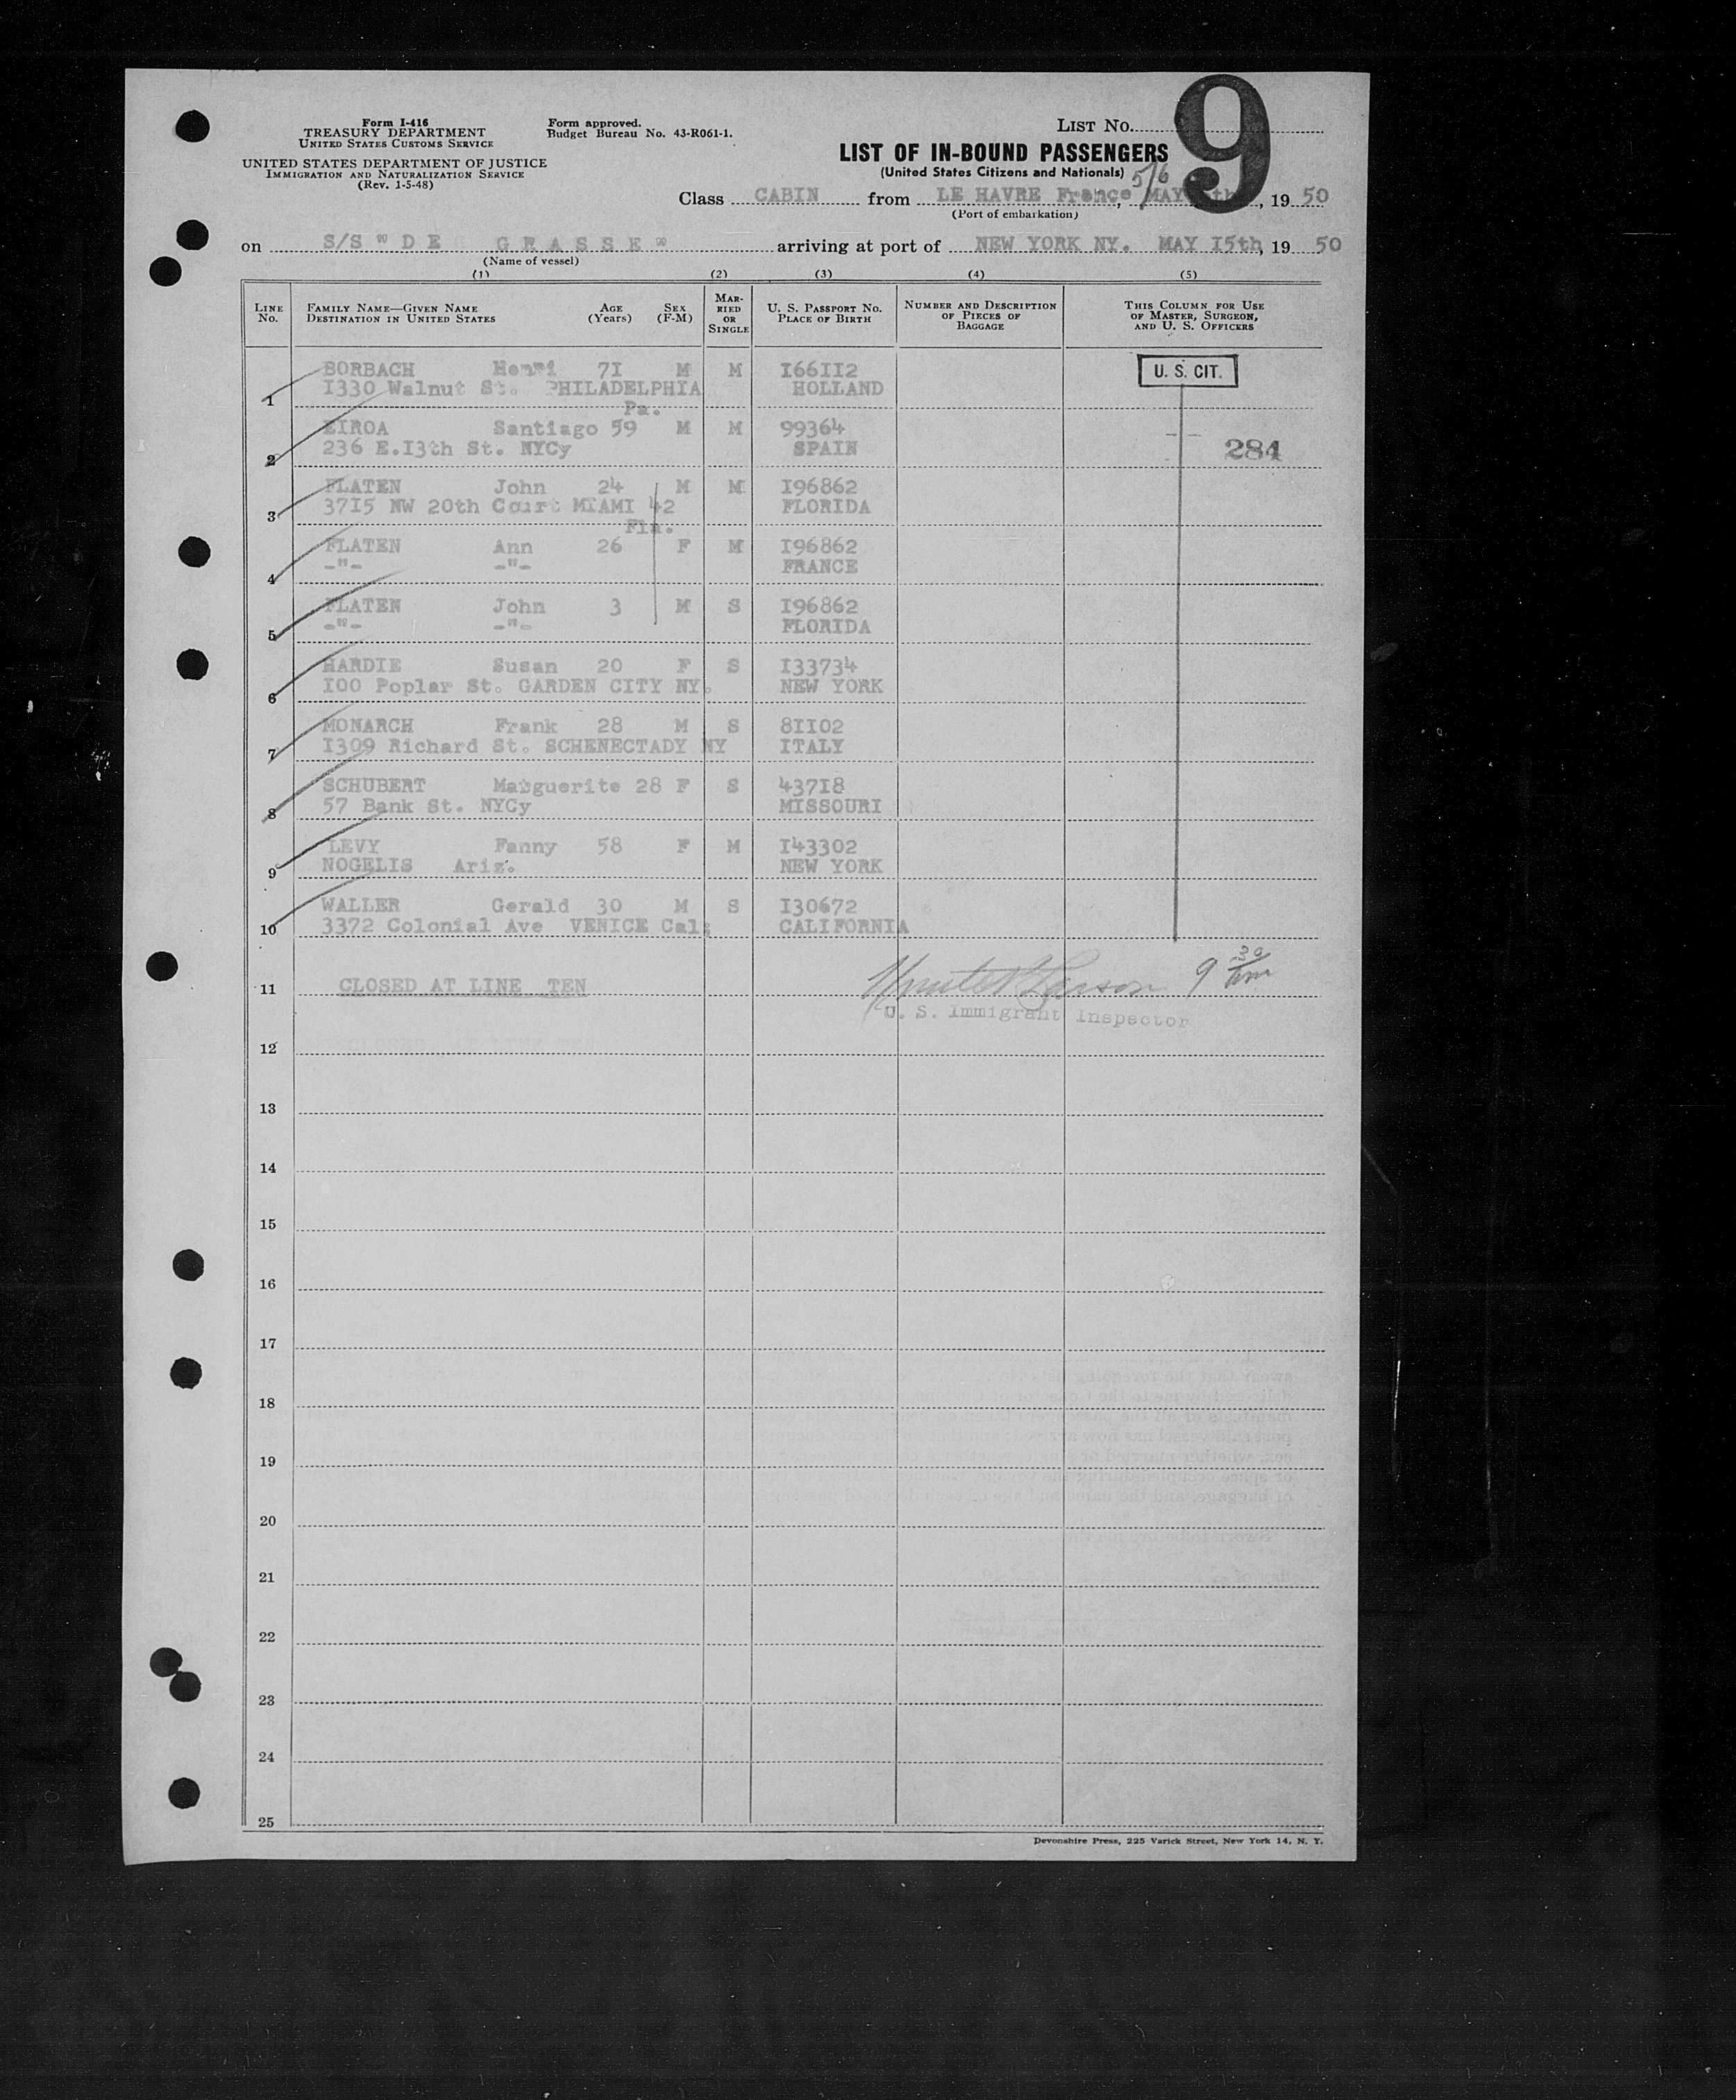 Form I-416
TREASURY DEPARTMENT
UNITED STATES CUSTOMS SERVICE
UNITED STATES DEPARTMENT OF JUSTICE
IMMIGRATION AND NATURALIZATION SERVICE
(Rev. 1-5-48)
Form approved.
Budget Bureau No. 43-R061-1.
LIST No. 9
LIST OF IN-BOUND PASSENGERS
(United States Citizens and Nationals)
5/6
Class CABIN from LE HAVRE France, MAY th, 19 50
(Port of embarkation)
on S/S " DE GRASSE " arriving at port of NEW YORK NY. MAY I5th, 19 50
(Name of vessel)
(1) (2) (3) (4) (5)
LINE No. FAMILY NAME—GIVEN NAME DESTINATION IN UNITED STATES AGE (Years) SEX (F-M) MARRIED OR SINGLE U. S. PASSPORT No. PLACE OF BIRTH NUMBER AND DESCRIPTION OF PIECES OF BAGGAGE THIS COLUMN FOR USE OF MASTER, SURGEON, AND U. S. OFFICERS
1 BORBACH Henri 7I M M I66II2 U. S. CIT.
I330 Walnut St. PHILADELPHIA Pa. HOLLAND
2 EIROA Santiago 59 M M 99364
236 E.I3th St. NYCy SPAIN 284
3 FLATEN John 24 M M I96862
37I5 NW 20th Court MIAMI 42 Fla. FLORIDA
4 FLATEN Ann 26 F M I96862
-"- -"- FRANCE
5 FLATEN John 3 M S I96862
-"- -"- FLORIDA
6 HARDIE Susan 20 F S I33734
I00 Poplar St. GARDEN CITY NY. NEW YORK
7 MONARCH Frank 28 M S 8II02
I309 Richard St. SCHENECTADY NY ITALY
8 SCHUBERT Marguerite 28 F S 437I8
57 Bank St. NYCy MISSOURI
9 LEVY Fanny 58 F M I43302
NOGELIS Ariz. NEW YORK
10 WALLER Gerald 30 M S I30672
3372 Colonial Ave VENICE Cal; CALIFORNIA
11 CLOSED AT LINE TEN Larson 9 30
U. S. Immigrant Inspector
12
13
14
15
16
17
18
19
20
21
22
23
24
25
Devonshire Press, 225 Varick Street, New York 14, N. Y.